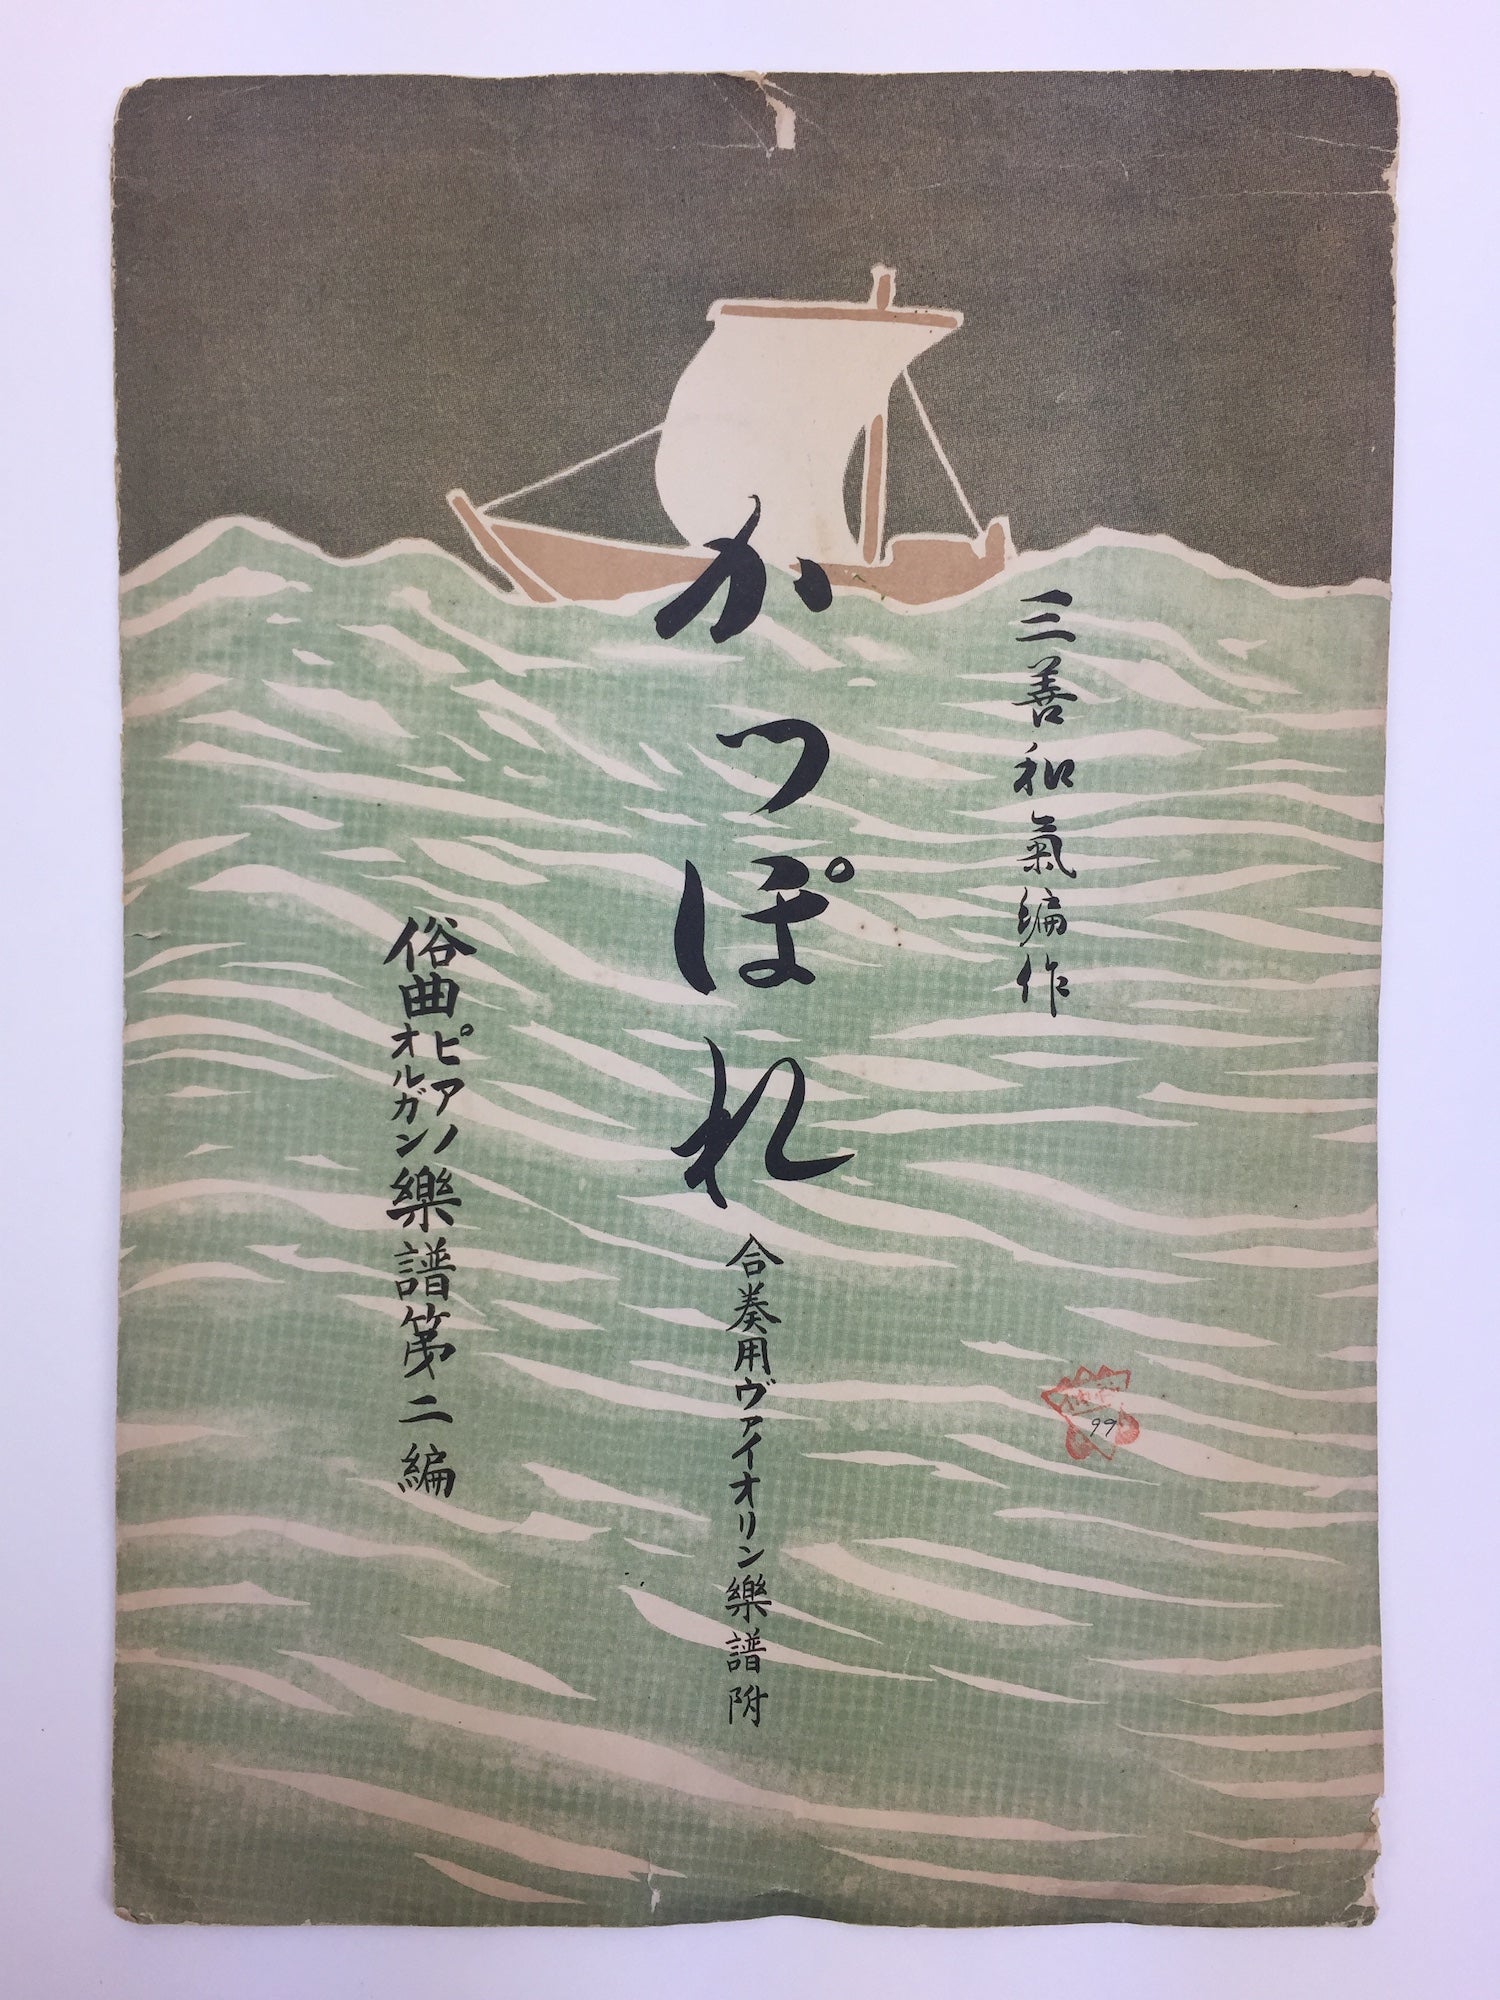 三善和氣編作
かっぽれ
合奏用ヴァイオリン樂譜附
俗曲ピアノオルガン樂譜第二編
99